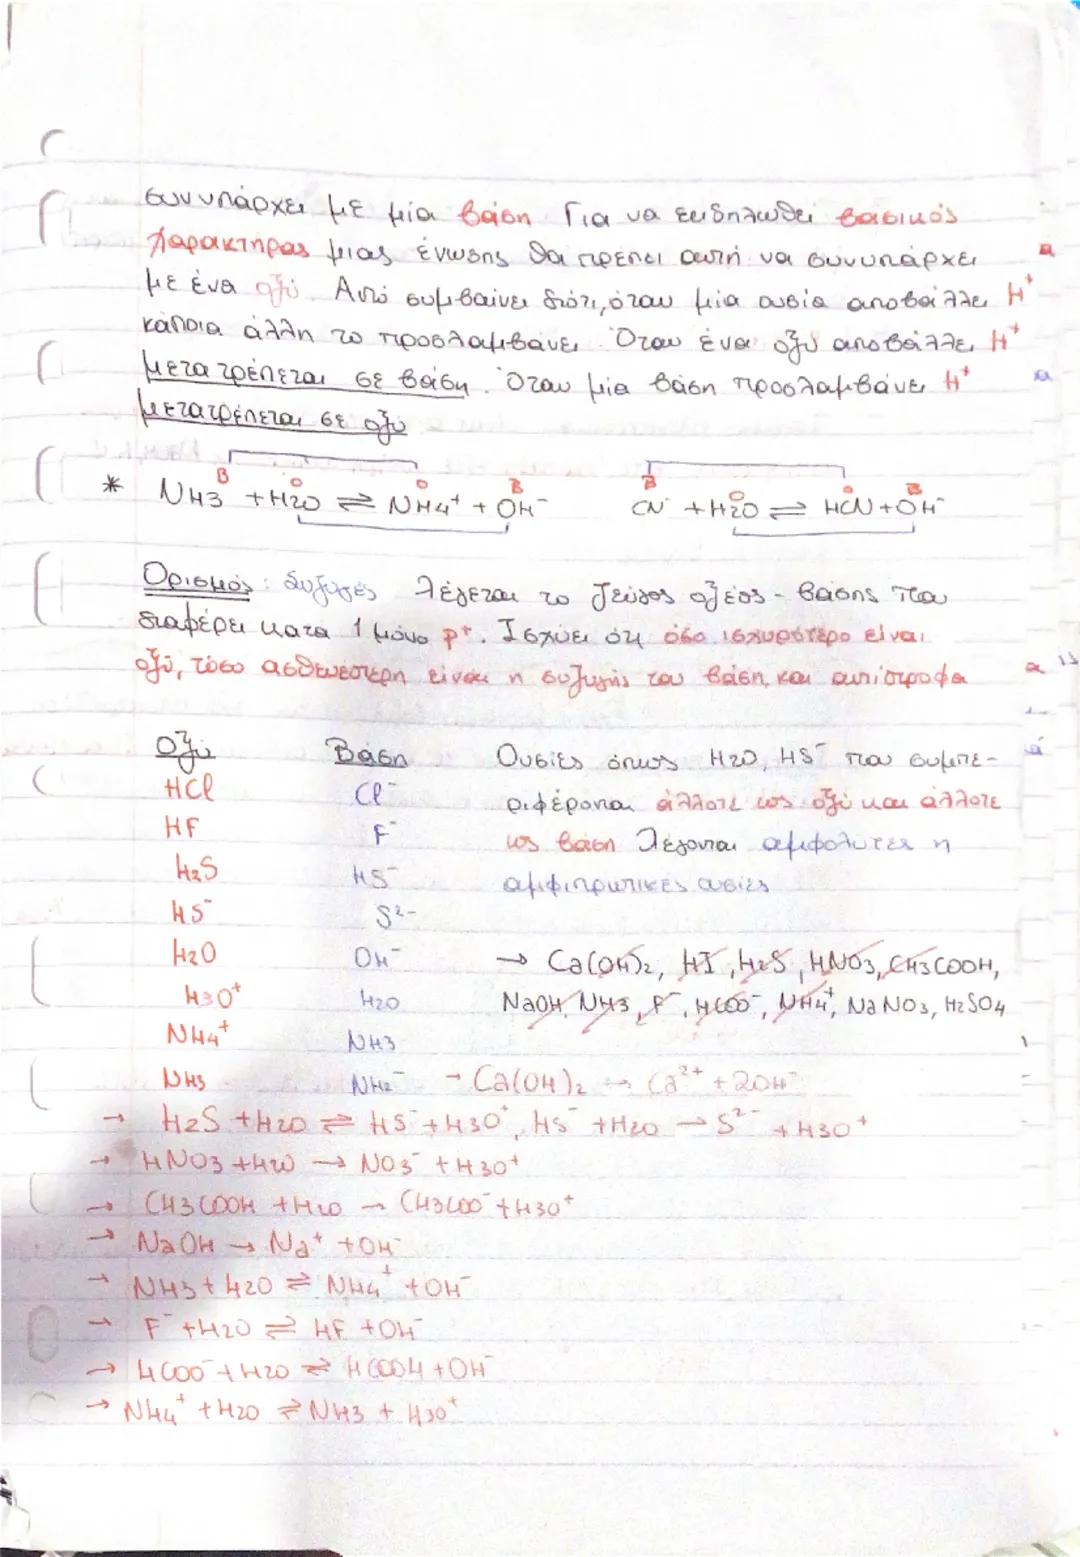 συνυπάρχει με μία βάση. Για να εκδηλωθεί βασικός
χαρακτήρας μιας ένωσης θα πρέπει αυτή να συνυπάρχει
με ένα οξύ. Αυτό συμβαίνει διότι, όταν μία ουσία αποβάλλει H⁺
κάποια άλλη το προσλαμβάνει. Όταν ένα οξύ αποβάλλει H⁺
μετατρέπεται σε βάση. Όταν μία βάση προσλαμβάνει H⁺
μετατρέπεται σε οξύ
Β Ο Ο Β Β Ο Ο Β
* NH3 + H2O ⇌ NH4⁺ + OH⁻ CN⁻ + H2O ⇌ HCN + OH⁻
Ορισμός: Συζυγές λέγεται το ζεύγος οξέος - βάσης που
διαφέρει κατα 1 μόνο p⁺. Ισχύει ότι όσο ισχυρότερο είναι
οξύ, τόσο ασθενέστερη είναι η συζυγής του βάση, και αντίστροφα
Οξύ Βάση Ουσίες όπως H2O, HS⁻ που συμπε-
HCl Cl⁻ ριφέρονται άλλοτε ως οξύ και άλλοτε
HF F⁻ ως βάση λέγονται αμφολύτες η
H2S HS⁻ αμφιπρωτικές ουσίες
HS⁻ S²⁻
H2O OH⁻ → Ca(OH)2, HI, H2S, HNO3, CH3COOH,
H3O⁺ H2O NaOH, NH3, F⁻, HCOO⁻, NH4⁺, NaNO3, H2SO4
NH4⁺ NH3
NH3 NH2⁻ → Ca(OH)2 → Ca²⁺ + 2OH⁻
→ H2S + H2O ⇌ HS⁻ + H3O⁺, HS⁻ + H2O → S²⁻ + H3O⁺
→ HNO3 + H2O → NO3⁻ + H3O⁺
→ CH3COOH + H2O → CH3COO⁻ + H3O⁺
→ NaOH → Na⁺ + OH⁻
→ NH3 + H2O ⇌ NH4⁺ + OH⁻
→ F⁻ + H2O ⇌ HF + OH⁻
→ HCOO⁻ + H2O ⇌ HCOOH + OH⁻
→ NH4⁺ + H2O ⇌ NH3 + H3O⁺